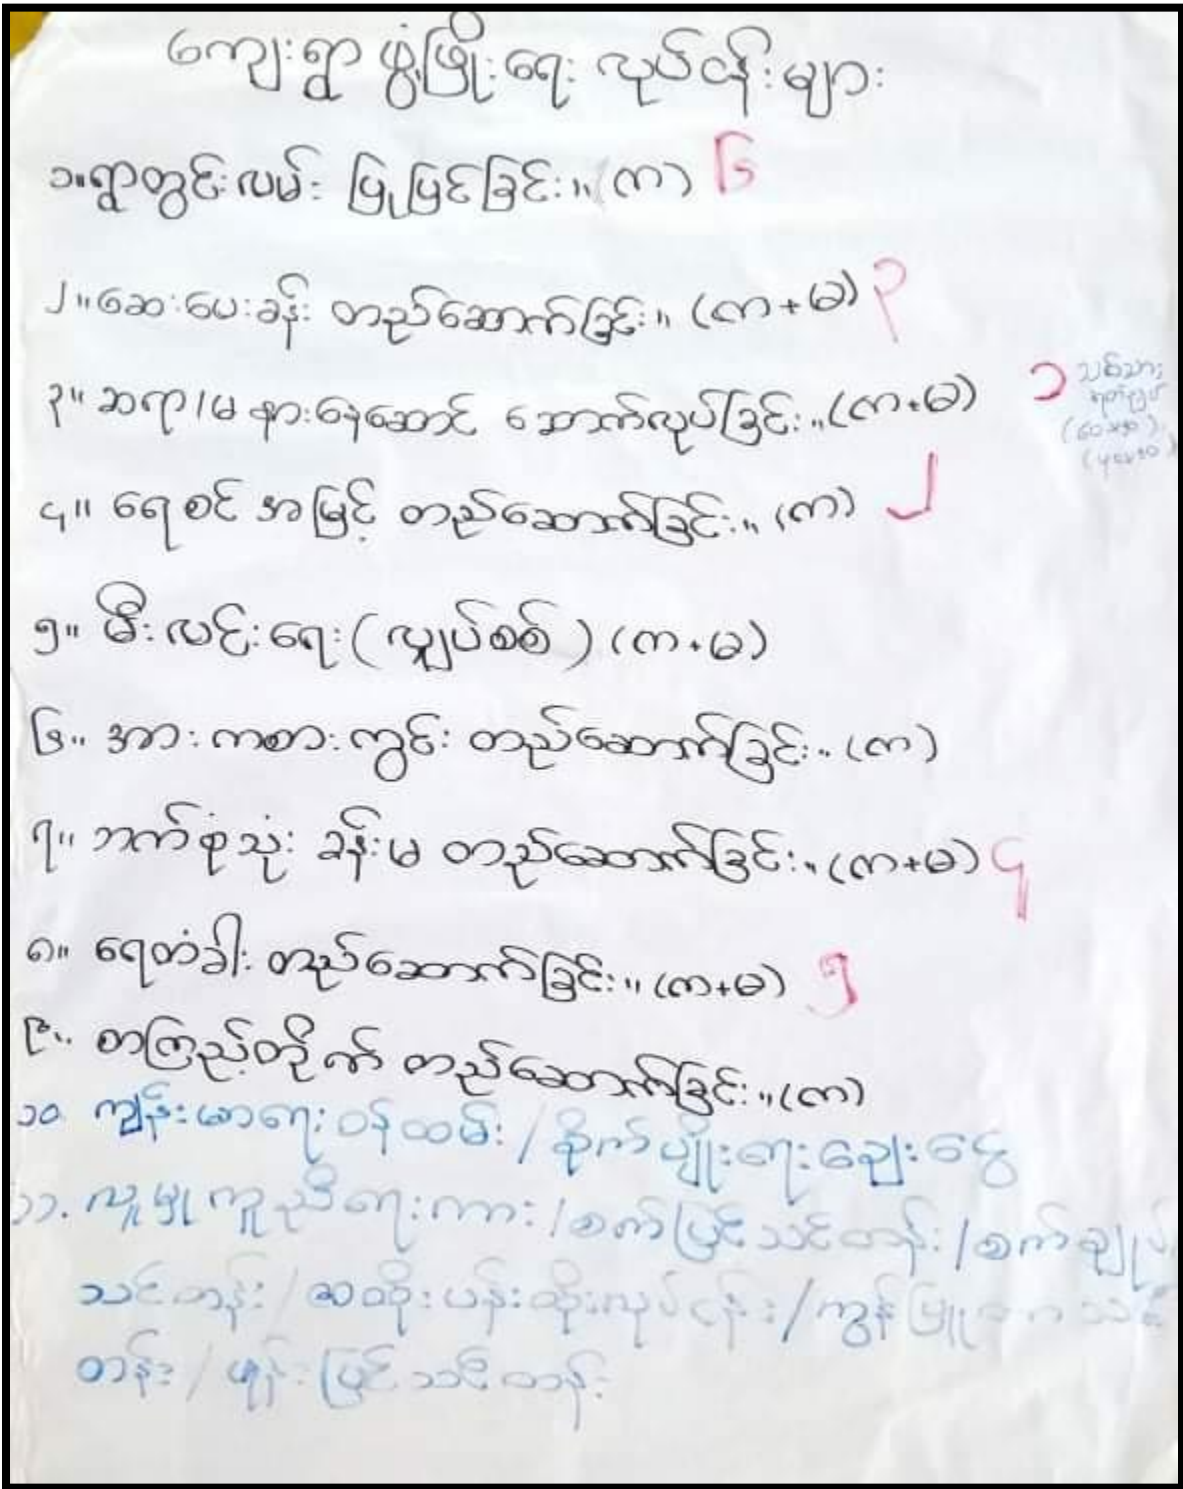 ကျေးရွာ ဖွံ့ဖြိုးရေး လုပ်ငန်းများ
၁။ရွာတွင်းလမ်း ပြုပြင်ခြင်း။ (က) ၆
၂။ဆေးပေးခန်း တည်ဆောက်ခြင်း။ (က+မ) ၃
၃။ ဆရာ/မ နားနေဆောင် ဆောက်လုပ်ခြင်း။ (က+မ) ၁ သစ်သား
၄။ ရေစင် အမြင့် တည်ဆောက်ခြင်း။ (က) ၂
၅။ မီးလင်းရေး (လျှပ်စစ်) (က+မ)
၆။ အားကစားကွင်း တည်ဆောက်ခြင်း။ (က)
၇။ ဘက်စုံသုံး ခန်းမ တည်ဆောက်ခြင်း။ (က+မ) ၄
၈။ ရေတံခါး တည်ဆောက်ခြင်း။ (က+မ) ၅
၉။ စာကြည့်တိုက် တည်ဆောက်ခြင်း။ (က)
၁၀. ကျန်းမာရေးဝန်ထမ်း / စိုက်ပျိုးရေးချေးငွေ
၁၁. လူမှုကူညီရေးကား / စက်ပြင်သင်တန်း / စက်ချုပ်
သင်တန်း / ဆထိုးပန်းထိုးလုပ်ငန်း / ကွန်ပြူတာသင်
တန်း / ဖုန်းပြင်သင်တန်း